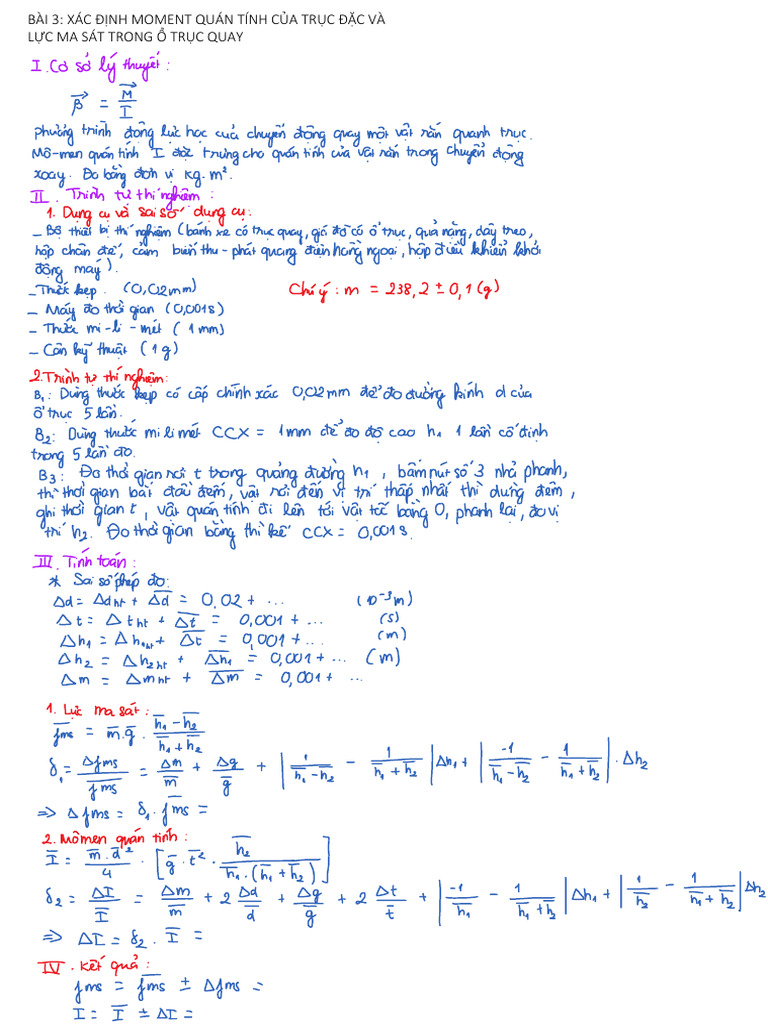 BÀI 3: XÁC ĐỊNH MOMENT QUÁN TÍNH CỦA TRỤC ĐẶC VÀ
LỰC MA SÁT TRONG Ổ TRỤC QUAY
I. Cơ sở lý thuyết :
β⃗ = M⃗ / I
phương trình động lực học của chuyển động quay một vật rắn quanh trục.
Mô-men quán tính I đặc trưng cho quán tính của vật rắn trong chuyển động
xoay. Đo bằng đơn vị kg.m².
II. Trình tự thí nghiệm :
1. Dụng cụ và sai số dụng cụ :
_ Bộ thiết bị thí nghiệm (bánh xe có trục quay, giá đỡ có ổ trục, quả nặng, dây treo,
hộp chân đế, cảm biến thu - phát quang điện hồng ngoại, hộp điều khiển khởi
động máy).
_ Thước kẹp. (0,02mm) Chú ý : m = 238,2 ± 0,1 (g)
_ Máy đo thời gian (0,001s)
_ Thước mi-li-mét (1mm)
_ Cân kỹ thuật (1g)
2. Trình tự thí nghiệm:
B₁: Dùng thước kẹp có cấp chính xác 0,02mm để đo đường kính d của
ổ trục 5 lần.
B₂: Dùng thước mi li mét CCX = 1mm để đo độ cao h₁ 1 lần cố định
trong 5 lần đo.
B₃: Đo thời gian rơi t trong quảng đường h₁, bấm nút số 3 nhả phanh,
thì thời gian bắt đầu đếm, vật rơi đến vị trí thấp nhất thì dừng đếm,
ghi thời gian t, vật quán tính đi lên tới vận tốc bằng 0, phanh lại, đo vị
trí h₂. Đo thời gian bằng thì kế CCX = 0,001s.
III. Tính toán :
* Sai số phép đo:
Δd = Δd_ht + Δ̅d̅ = 0,02 + ... (10⁻³m)
Δt = Δt_ht + Δ̅t̅ = 0,001 + ... (s)
Δh₁ = Δh₁ht + Δ̅t̅ = 0,001 + ... (m)
Δh₂ = Δh₂ht + Δ̅h̅₁ = 0,001 + ... (m)
Δm = Δm_ht + Δ̅m̅ = 0,001 + ...
1. Lực ma sát :
f̅ms = m̅.g̅. (h̅₁ - h̅₂) / (h̅₁ + h̅₂)
δ₁ = Δfms / f̅ms = Δm/m̅ + Δg/g̅ + | 1/(h̅₁ - h̅₂) - 1/(h̅₁ + h̅₂) | Δh₁ + | -1/(h̅₁ - h̅₂) - 1/(h̅₁ + h̅₂) | . Δh₂
=> Δfms = δ₁ . f̅ms =
2. Mômen quán tính :
I̅ = (m̅.d̅²)/4 . [ g̅.t̅² . h̅₂ / (h̅₁.(h̅₁ + h̅₂)) ]
δ₂ = ΔI/I̅ = Δm/m̅ + 2 Δd/d̅ + Δg/g̅ + 2 Δt/t̅ + | -1/h̅₁ - 1/(h̅₁ + h̅₂) | Δh₁ + | 1/h̅₂ - 1/(h̅₁ + h̅₂) | Δh₂
=> ΔI = δ₂ . I̅ =
IV. Kết quả :
fms = f̅ms ± Δfms =
I = I̅ ± ΔI =